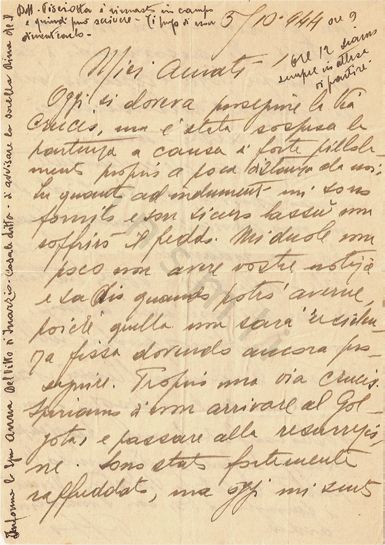 Dott. Pisciotta è rimasto in campo
e quindi può scrivere - Ti prego di non
dimenticarlo -
5/10-944 ore 9
ore 12 siamo
sempre in attesa
di partire
Miei Amati!
Oggi si doveva proseguire la Via
Crucis, ma è stata sospesa la
partenza a causa di forte
proprio a poca distanza da noi.
In quanto ad indumenti mi sono
fornito e son sicuro lassù non
soffrirò il freddo. Mi duole non
poco non avere vostre notizie
e sa Dio quando potrò averne,
poiché quella non sarà residen-
za fissa dovendo ancora pro-
seguire. Proprio una via crucis.
Speriamo di non arrivare al Gol-
gota, e passare alla resurrezio-
ne. Sono stato fortemente
raffreddato, ma oggi mi sento
Informa la Anna Del Vitto di - Casale - di avvisare la sorella